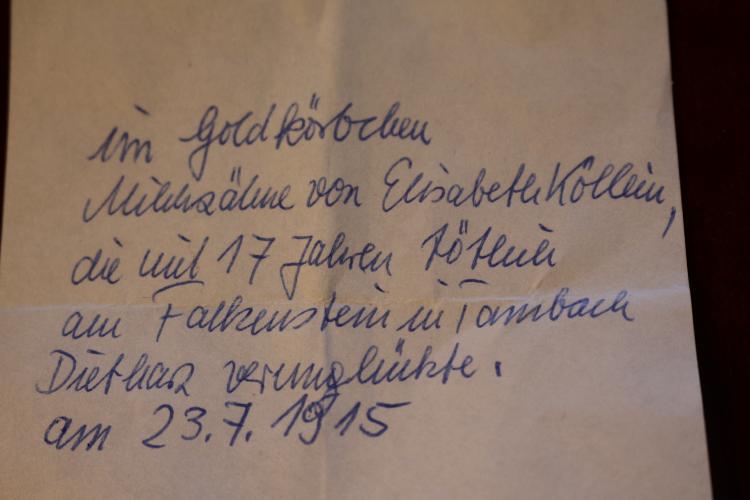 im Goldkörbchen
Milchzähne von Elisabeth Köllein,
die mit 17 Jahren tötlich
am Falkenstein in Tambach
Dietharz verunglückte.
am 23.7.1915